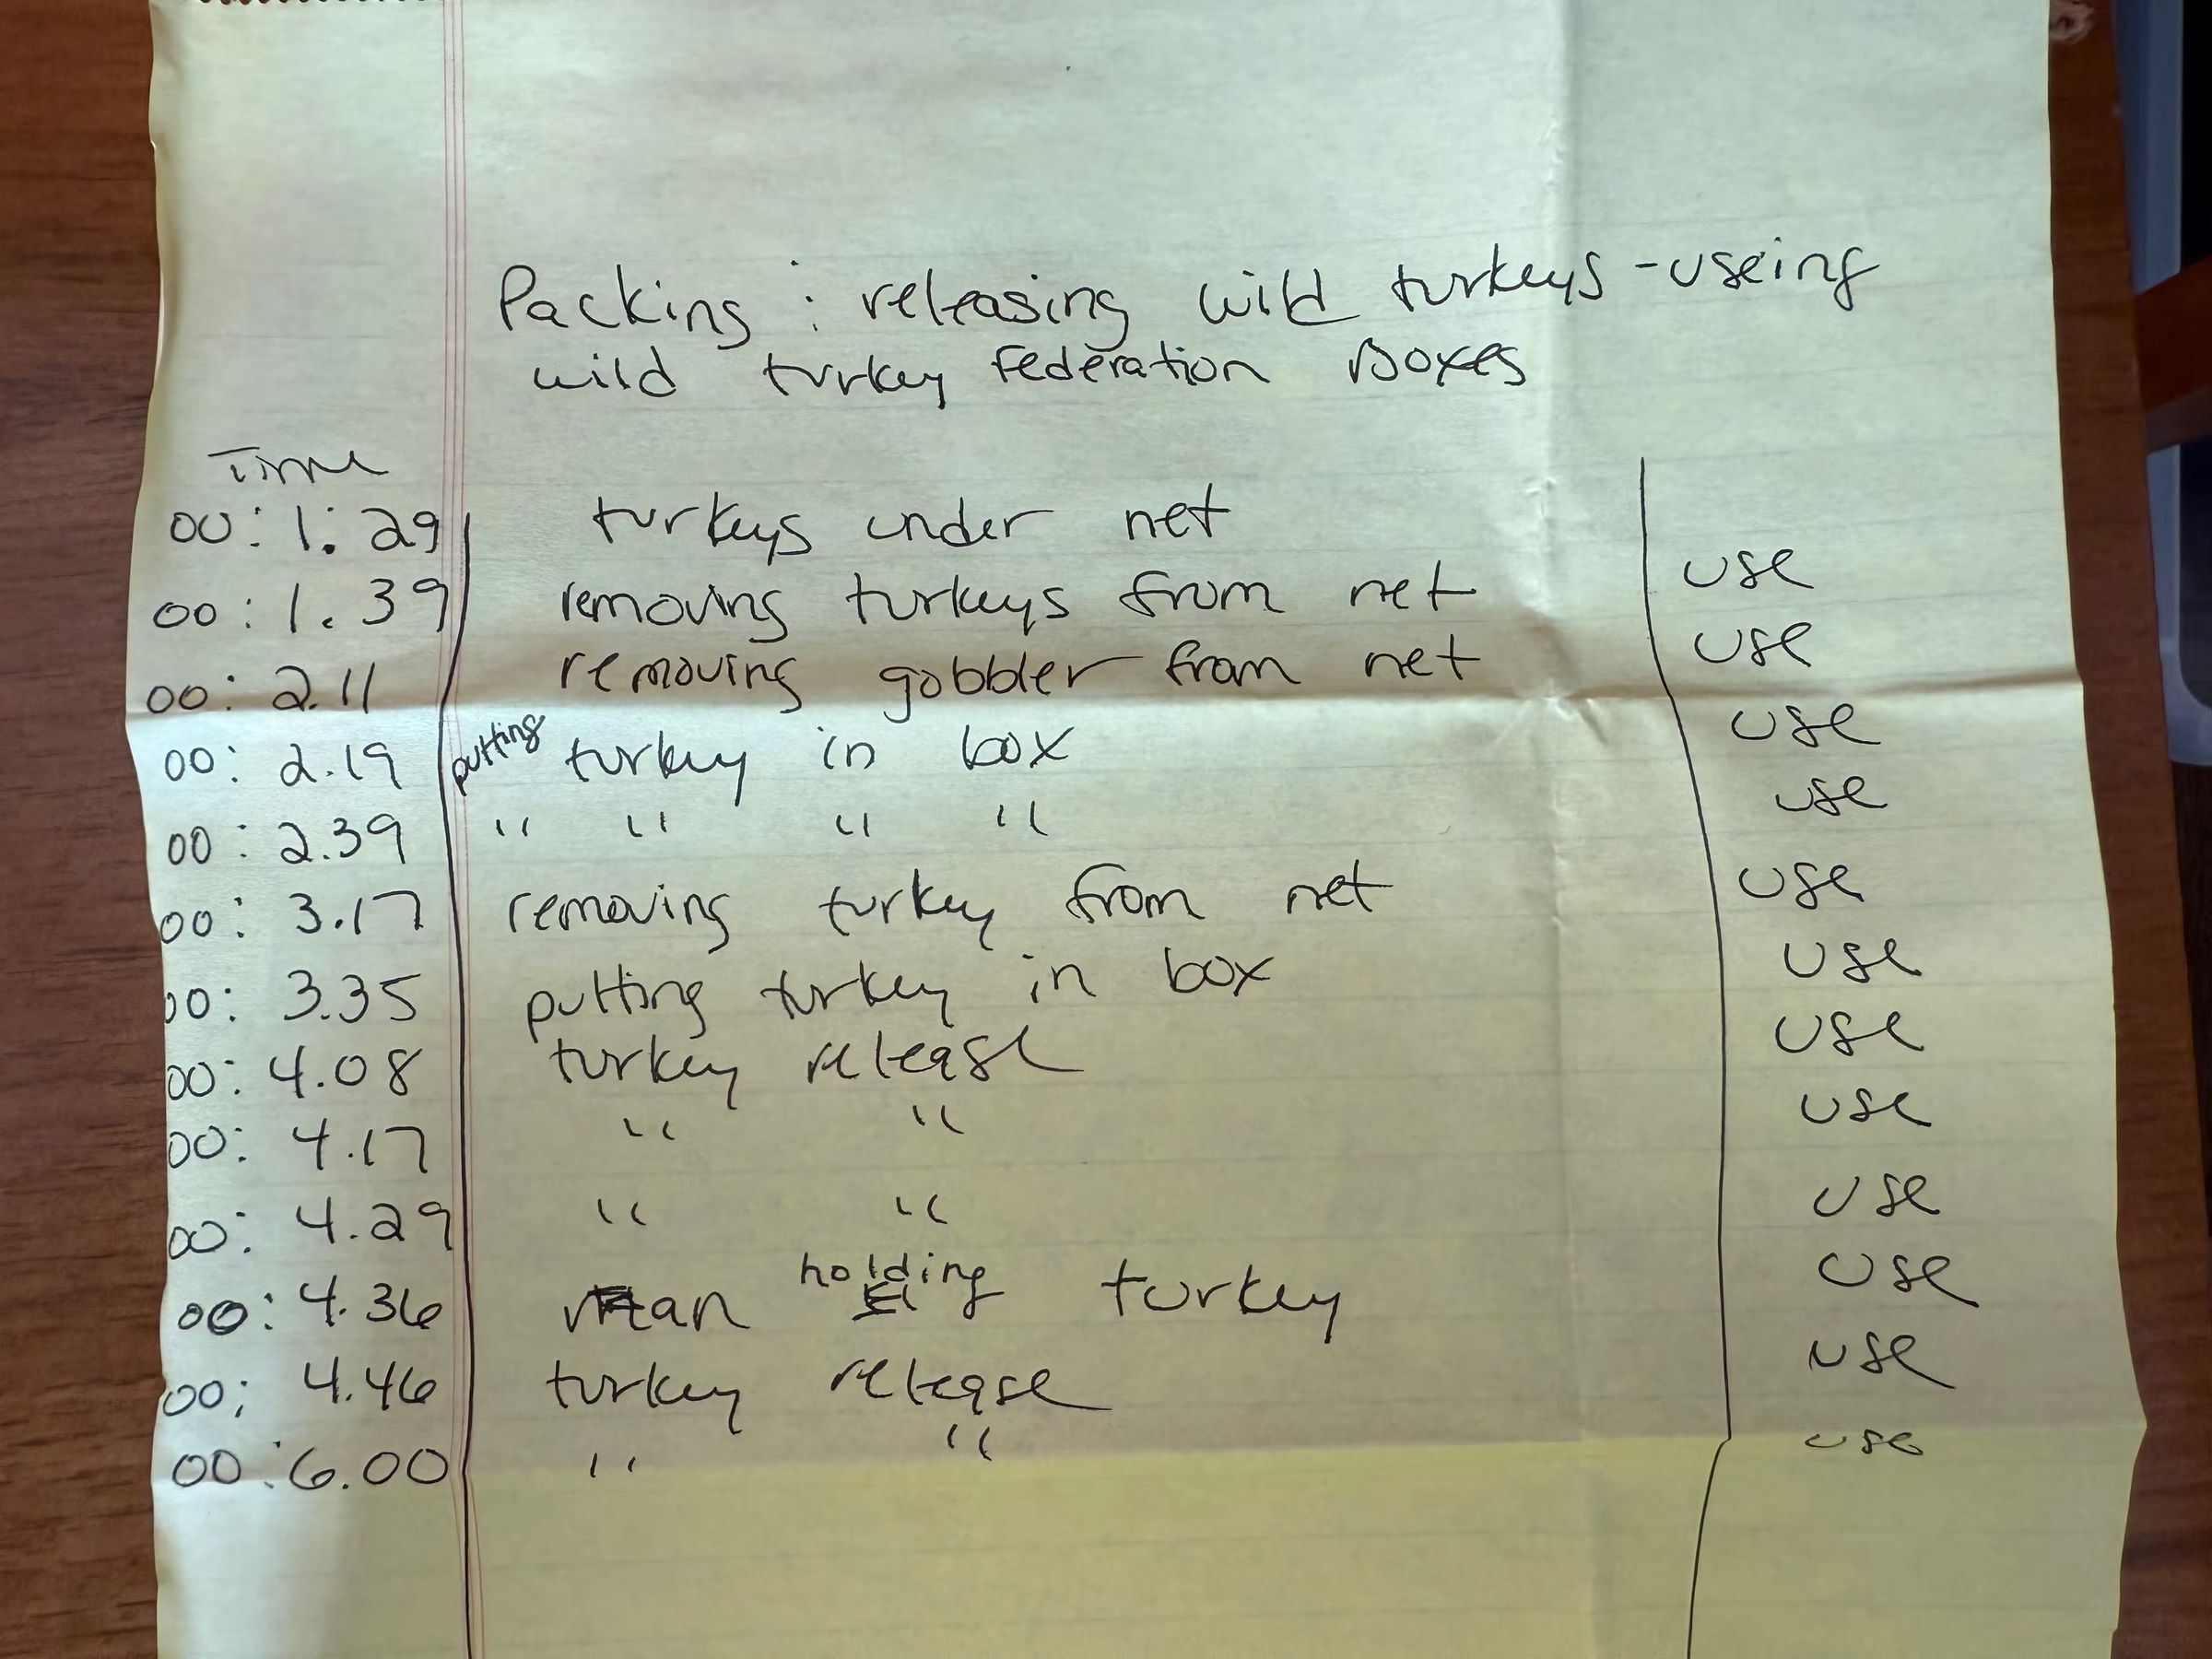 Packing : releasing wild turkeys - useing
wild turkey Federation Boxes
Time
00: 1: 29 turkeys under net use
00: 1.39 removing turkeys from net use
00: 2.11 removing gobbler from net use
00: 2.19 putting turkey in box use
00: 2.39 " " " " use
00: 3.17 removing turkey from net use
00: 3.35 putting turkey in box use
00: 4.08 turkey release use
00: 4.17 " " use
00: 4.29 " " use
00: 4.36 man holding turkey use
00; 4.46 turkey release use
00: 6.00 " "